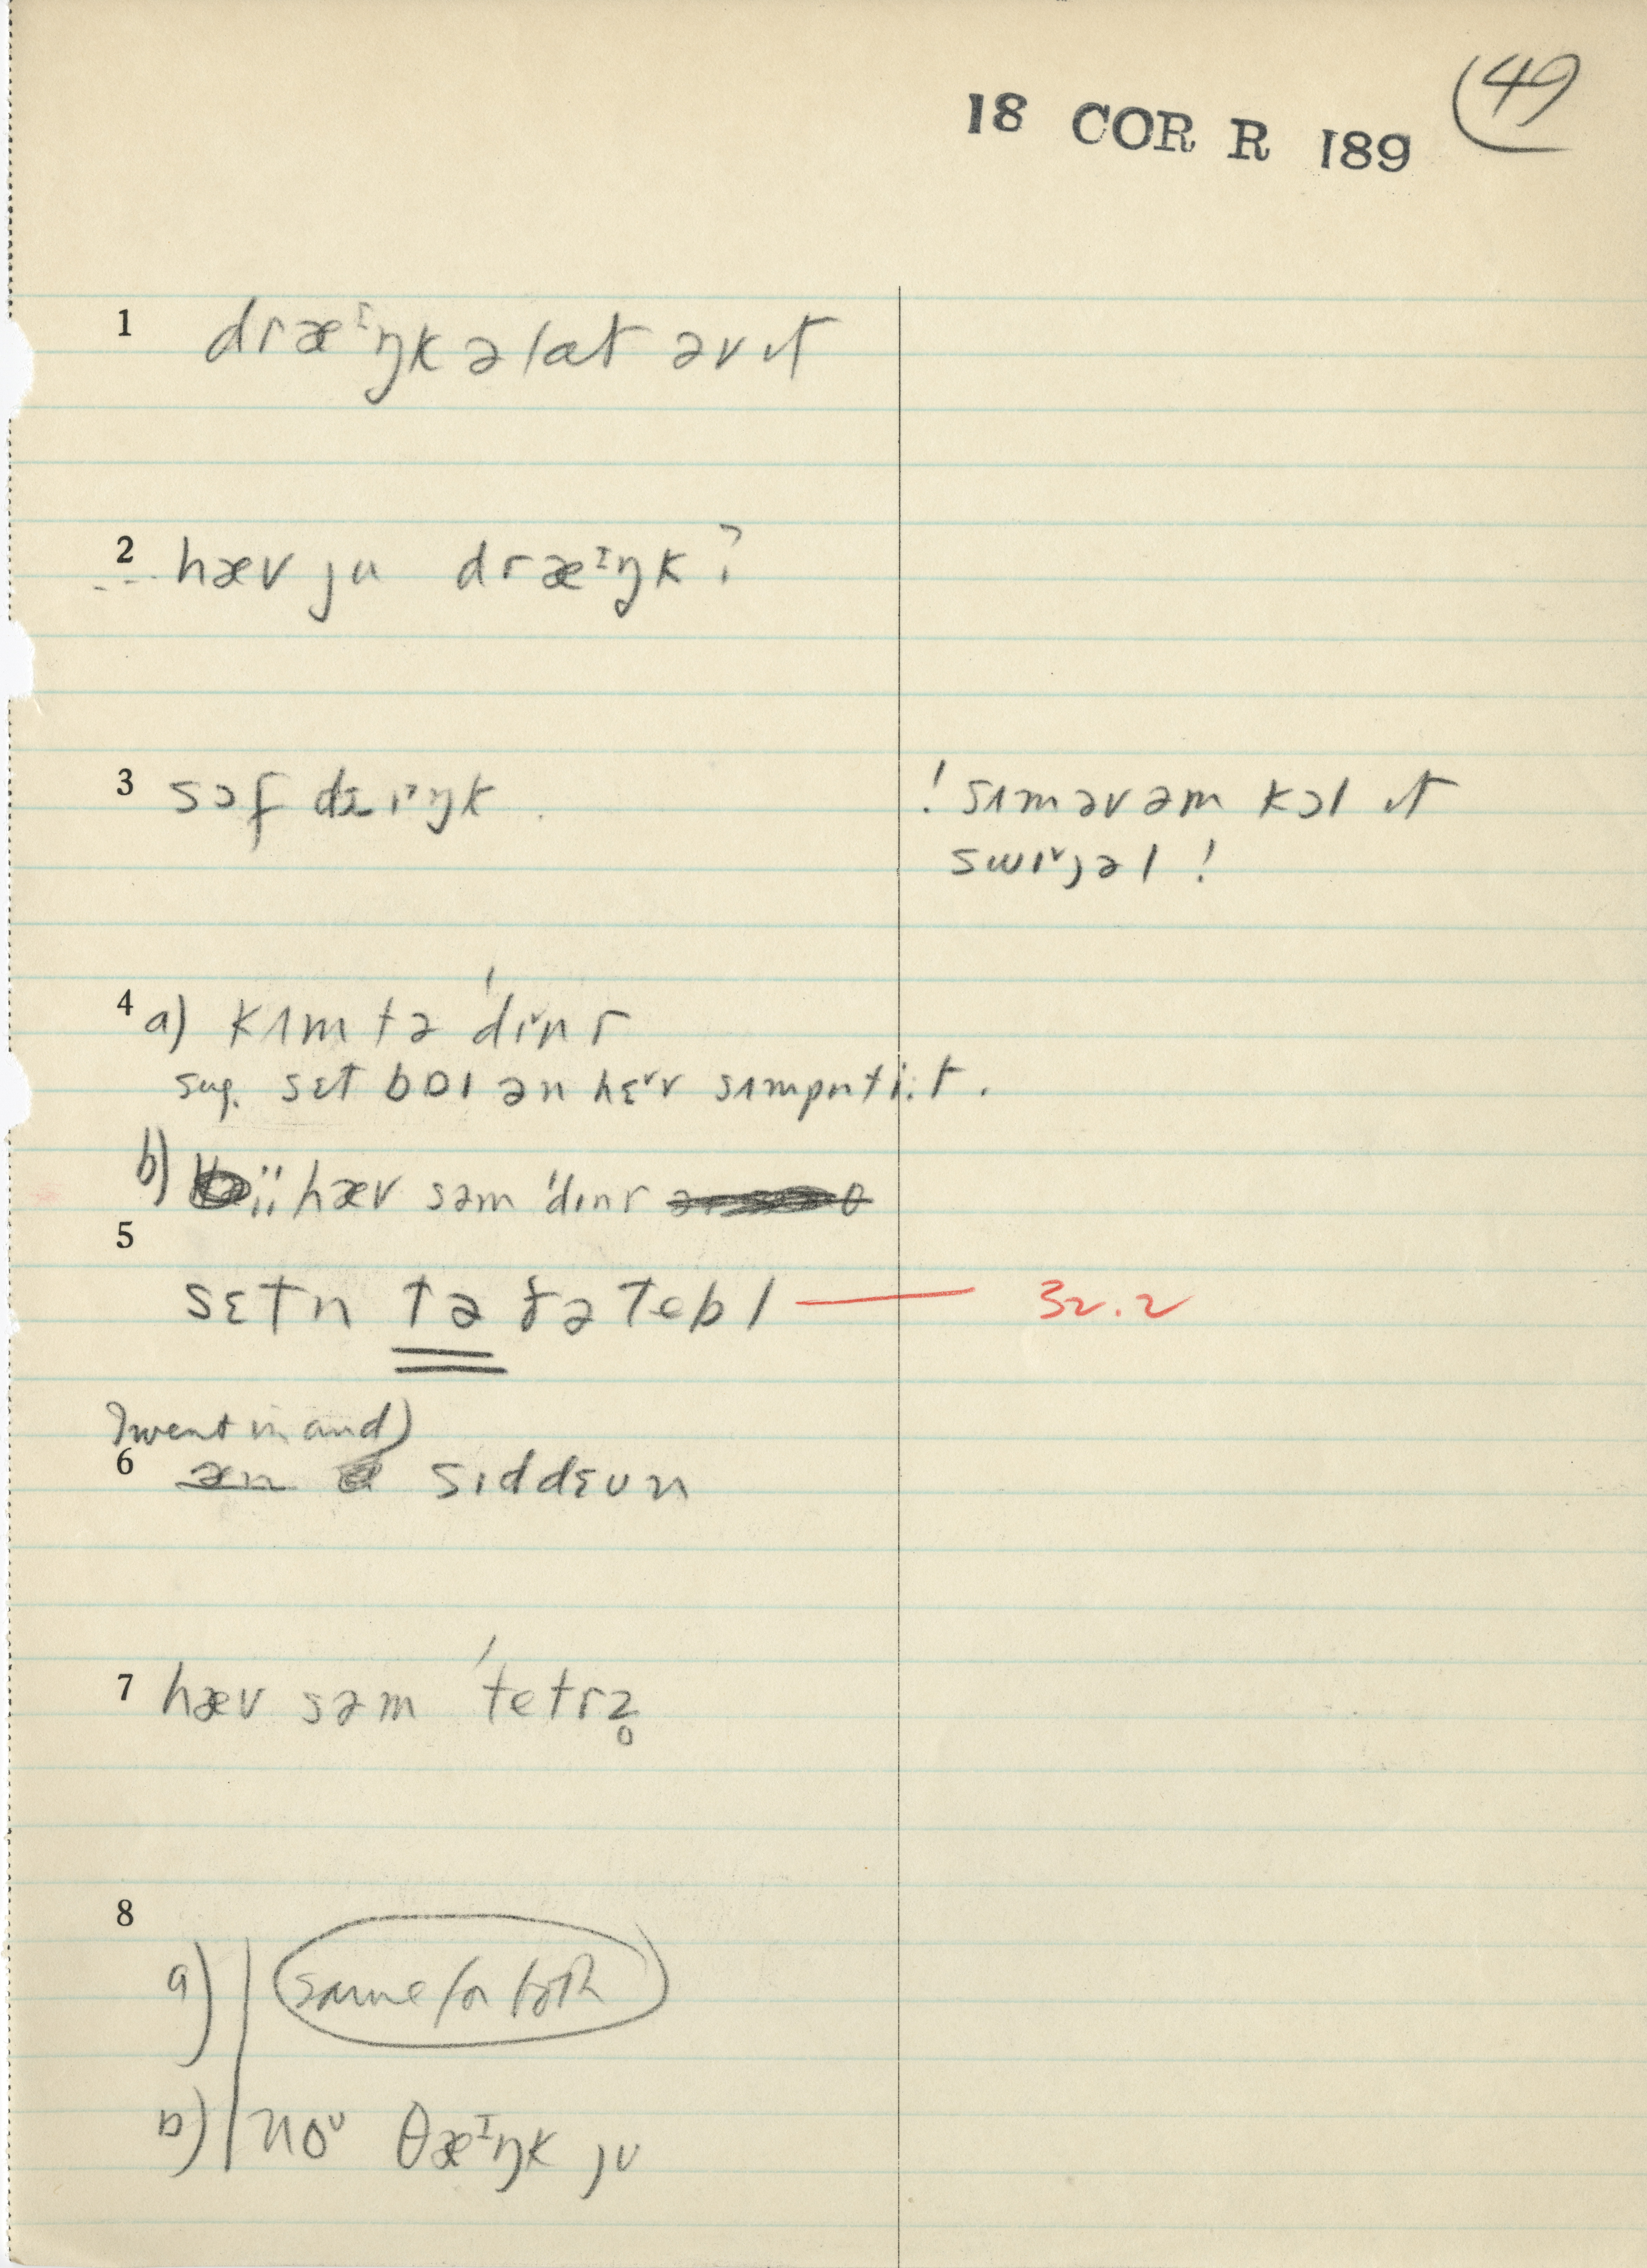 18 COR R 189 (49
1 dræᶦŋk ə lɑt əv ɪt
2 hæv ju dræᶦŋk?
3 sɔf drɪᵛŋk. ! sʌm əv əm kɔl ɪt
swɪᵛʝəl !
4 a) kʌm tə 'dɪᵛnr
sug. sɛt bɒɪ ən hɛᵛv sʌmpnt i:t.
b) ii hæv səm 'dɪnr
5
sɛtn tə ðə tebl — 32.2
I went in and)
6 æn sɪddɛʊn
7 hæv səm 'tetrz̥
8
a) same for both
b) noᶷ θæᶦŋk jʊ